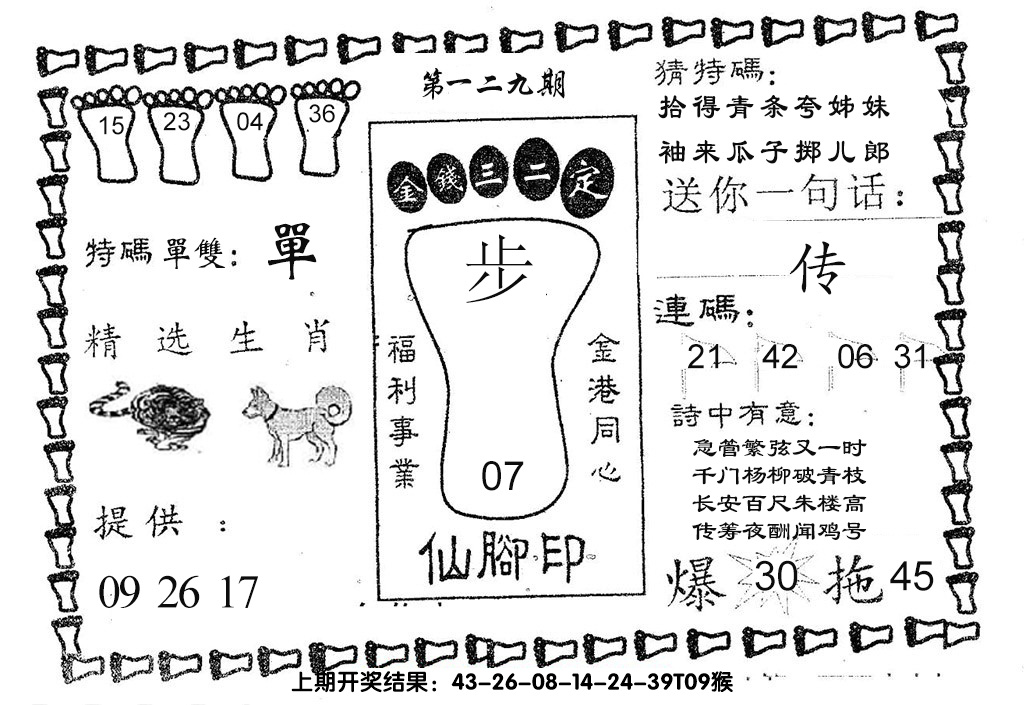 第一二九期
15 23 04 36
特碼單雙：單
精选生肖
提供：
09 26 17
金錢三二定
步
福利事業
金港同心
07
仙腳印
猜特碼：
拾得青条夸姊妹
袖来瓜子掷儿郎
送你一句话：
传
連碼：
21 42 06 31
詩中有意：
急管繁弦又一时
千门杨柳破青枝
长安百尺朱楼高
传筹夜酬闻鸡号
爆 30 拖 45
上期开奖结果：43-26-08-14-24-39T09猴